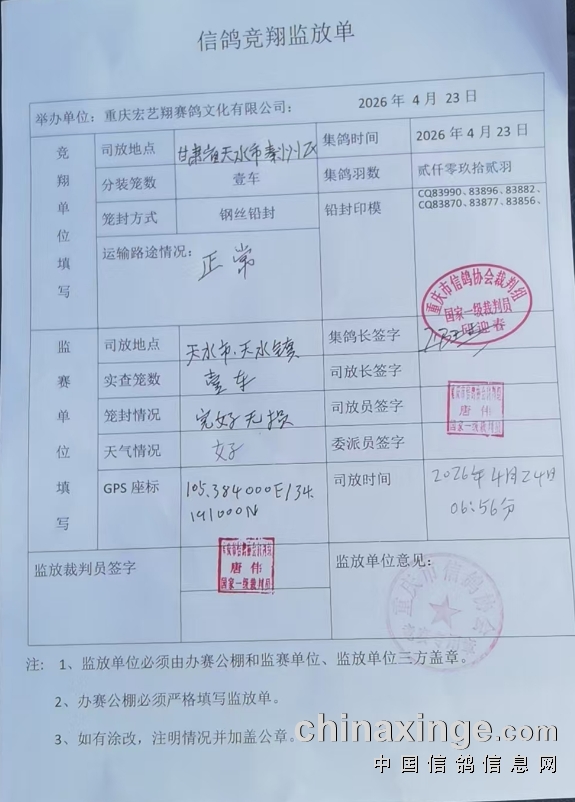 信鸽竞翔监放单
举办单位：重庆宏艺翔赛鸽文化有限公司： 2026 年 4 月 23 日
竞翔单位填写
司放地点 甘肃省天水市秦州区 集鸽时间 2026 年 4 月 23 日
分装笼数 壹车 集鸽羽数 贰仟零玖拾贰羽
笼封方式 钢丝铅封 铅封印模 CQ83990、83896、83882、
CQ83870、83877、83856、
运输路途情况： 正常
重庆市信鸽协会裁判组
国家一级裁判员
迎春
监赛单位填写
司放地点 天水市·天水镇 集鸽长签字
实查笼数 壹车 司放长签字
笼封情况 完好无损 司放员签字
唐伟
国家一级裁判员
天气情况 好 委派员签字
GPS 座标 105.384000E/34.
191000N
司放时间 2026年4月24日
06:56分
监放裁判员签字
唐伟
国家一级裁判员
监放单位意见：
重庆市信鸽协会
注： 1、监放单位必须由办赛公棚和监赛单位、监放单位三方盖章。
2、办赛公棚必须严格填写监放单。
3、如有涂改，注明情况并加盖公章。
chinaxinge.com
中国信鸽信息网